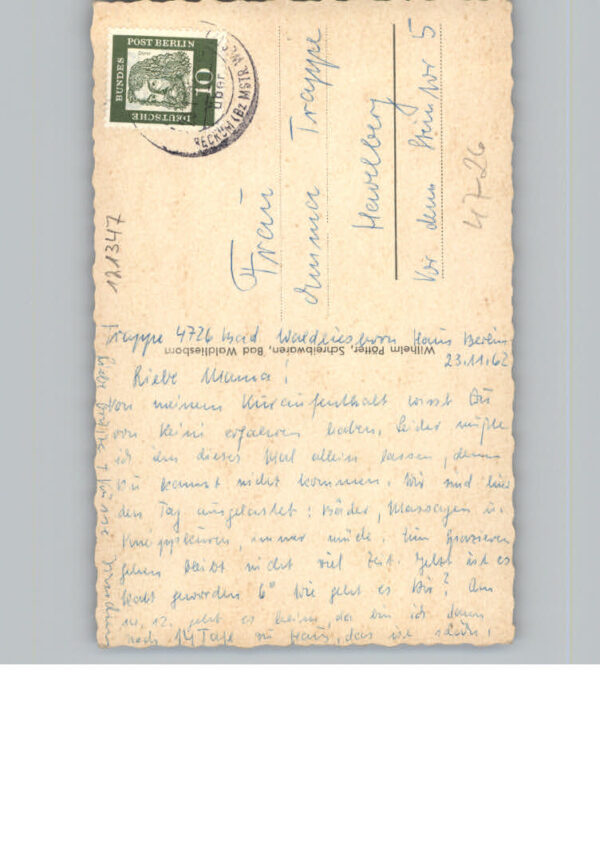 DEUTSCHE
BUNDES
POST BERLIN
Dürer
10
BECKUM (Bz MSTR. W
über
Frau
Emma Trappe
Havelberg
Vor dem 5
4726
121347
Trappe 4726 Bad Waldliesborn Haus Berlin
Wilhelm Pötter, Schreibwaren, Bad Waldliesborn
23.11.62
Liebe Mama!
Von meinem Kuraufenthalt wirst Du
von erfahren haben. Leider mußte
ich ihn dieses Mal allein lassen, denn
Du kannst nicht kommen. Wir sind hier
den Tag ausgelastet: Bäder, Massagen u.
Kneippkuren, immer müde. Zum Spazieren
gehen bleibt nicht viel Zeit. Jetzt ist es
kalt geworden 6° Wie geht es Dir? Am
12. geht es heim, da bin ich dann
noch 14 Tage zu Haus, das ist schön.
Liebe Grüße + Küsse